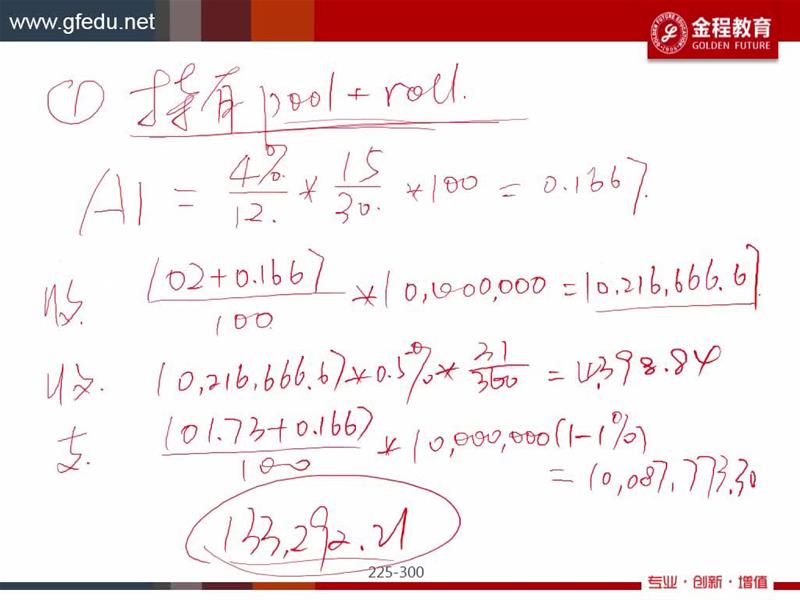 www.gfedu.net
金程教育
GOLDEN FUTURE
① 持有pool + roll.
AI = 4%/12. * 15/30. * 100 = 0.1667.
收. (102+0.1667)/100 * 10,000,000 = 10,216,666.67
收. 10,216,666.67 * 0.5% * 31/360 = 4,398.84
支. (101.73+0.1667)/100 * 10,000,000(1-1%)
= 10,087,773.30
133,292.21
225-300
专业·创新·增值